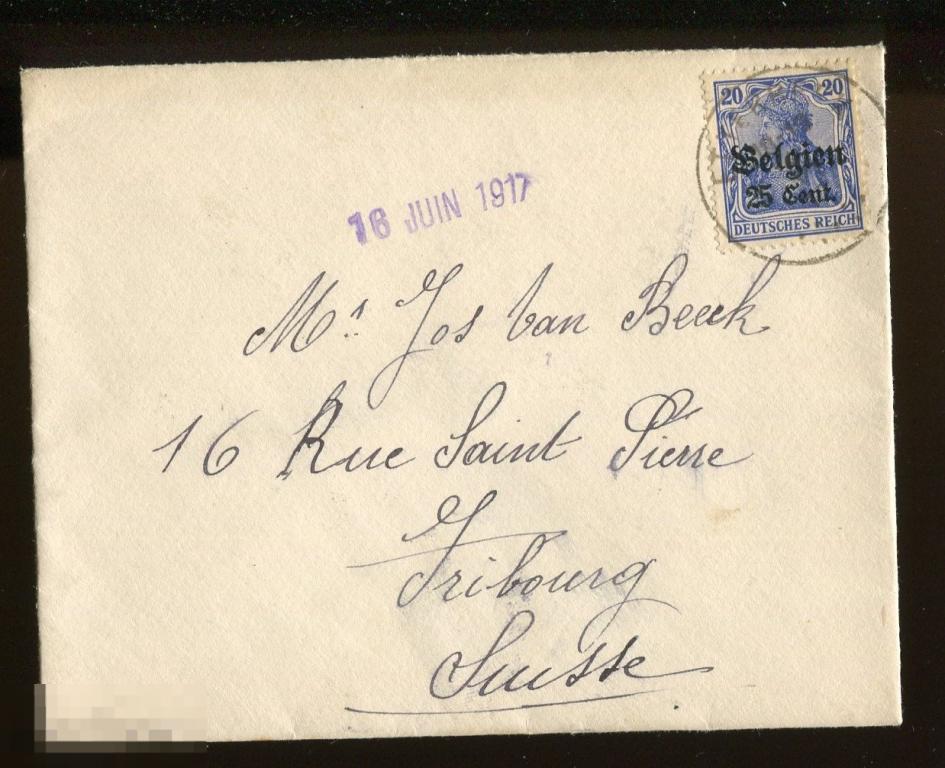 20 20
Belgien
25 Cent.
DEUTSCHES REICH
16 JUIN 1917
Mr. Jos Van Beeck
16 Rue Saint Pierre
Fribourg
Suisse